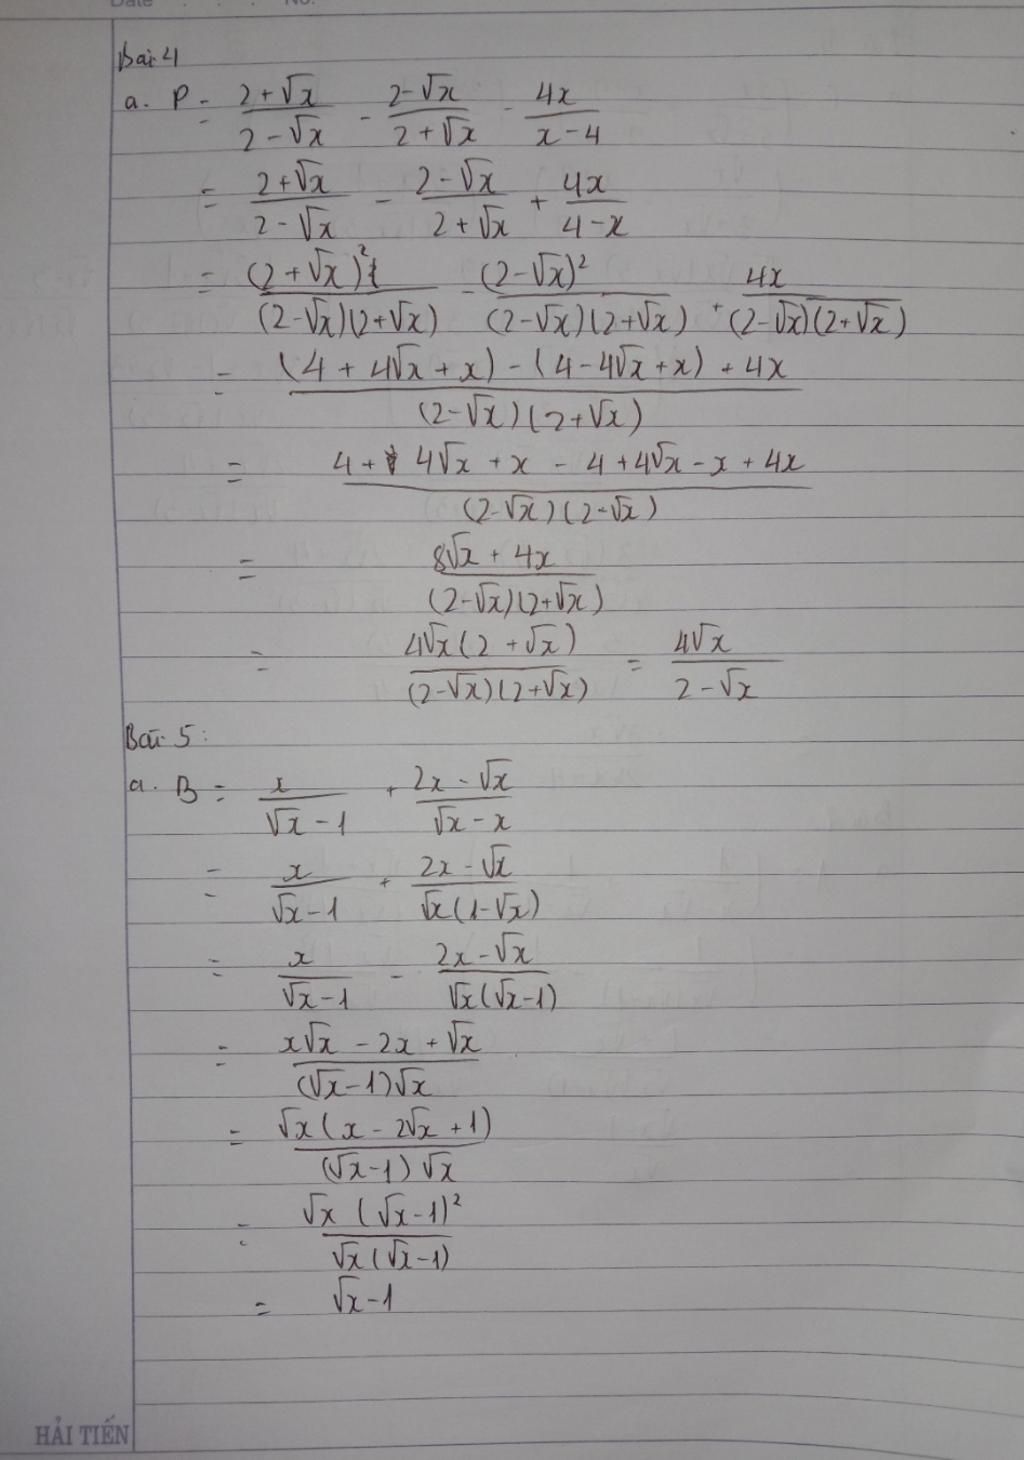 Date . . . No.
Bài 4
a. P = (2+√x)/(2-√x) - (2-√x)/(2+√x) - 4x/(x-4)
= (2+√x)/(2-√x) - (2-√x)/(2+√x) + 4x/(4-x)
= (2+√x)²/((2-√x)(2+√x)) - (2-√x)²/((2-√x)(2+√x)) + 4x/((2-√x)(2+√x))
= ((4+4√x+x)-(4-4√x+x)+4x)/((2-√x)(2+√x))
= (4+4√x+x-4+4√x-x+4x)/((2-√x)(2-√x))
= (8√x+4x)/((2-√x)(2+√x))
= 4√x(2+√x)/((2-√x)(2+√x)) = 4√x/(2-√x)
Bài 5:
a. B = x/(√x-1) + (2x-√x)/(√x-x)
= x/(√x-1) + (2x-√x)/(√x(1-√x))
= x/(√x-1) - (2x-√x)/(√x(√x-1))
= (x√x-2x+√x)/((√x-1)√x)
= √x(x-2√x+1)/((√x-1)√x)
= √x(√x-1)²/(√x(√x-1))
= √x-1
HẢI TIẾN